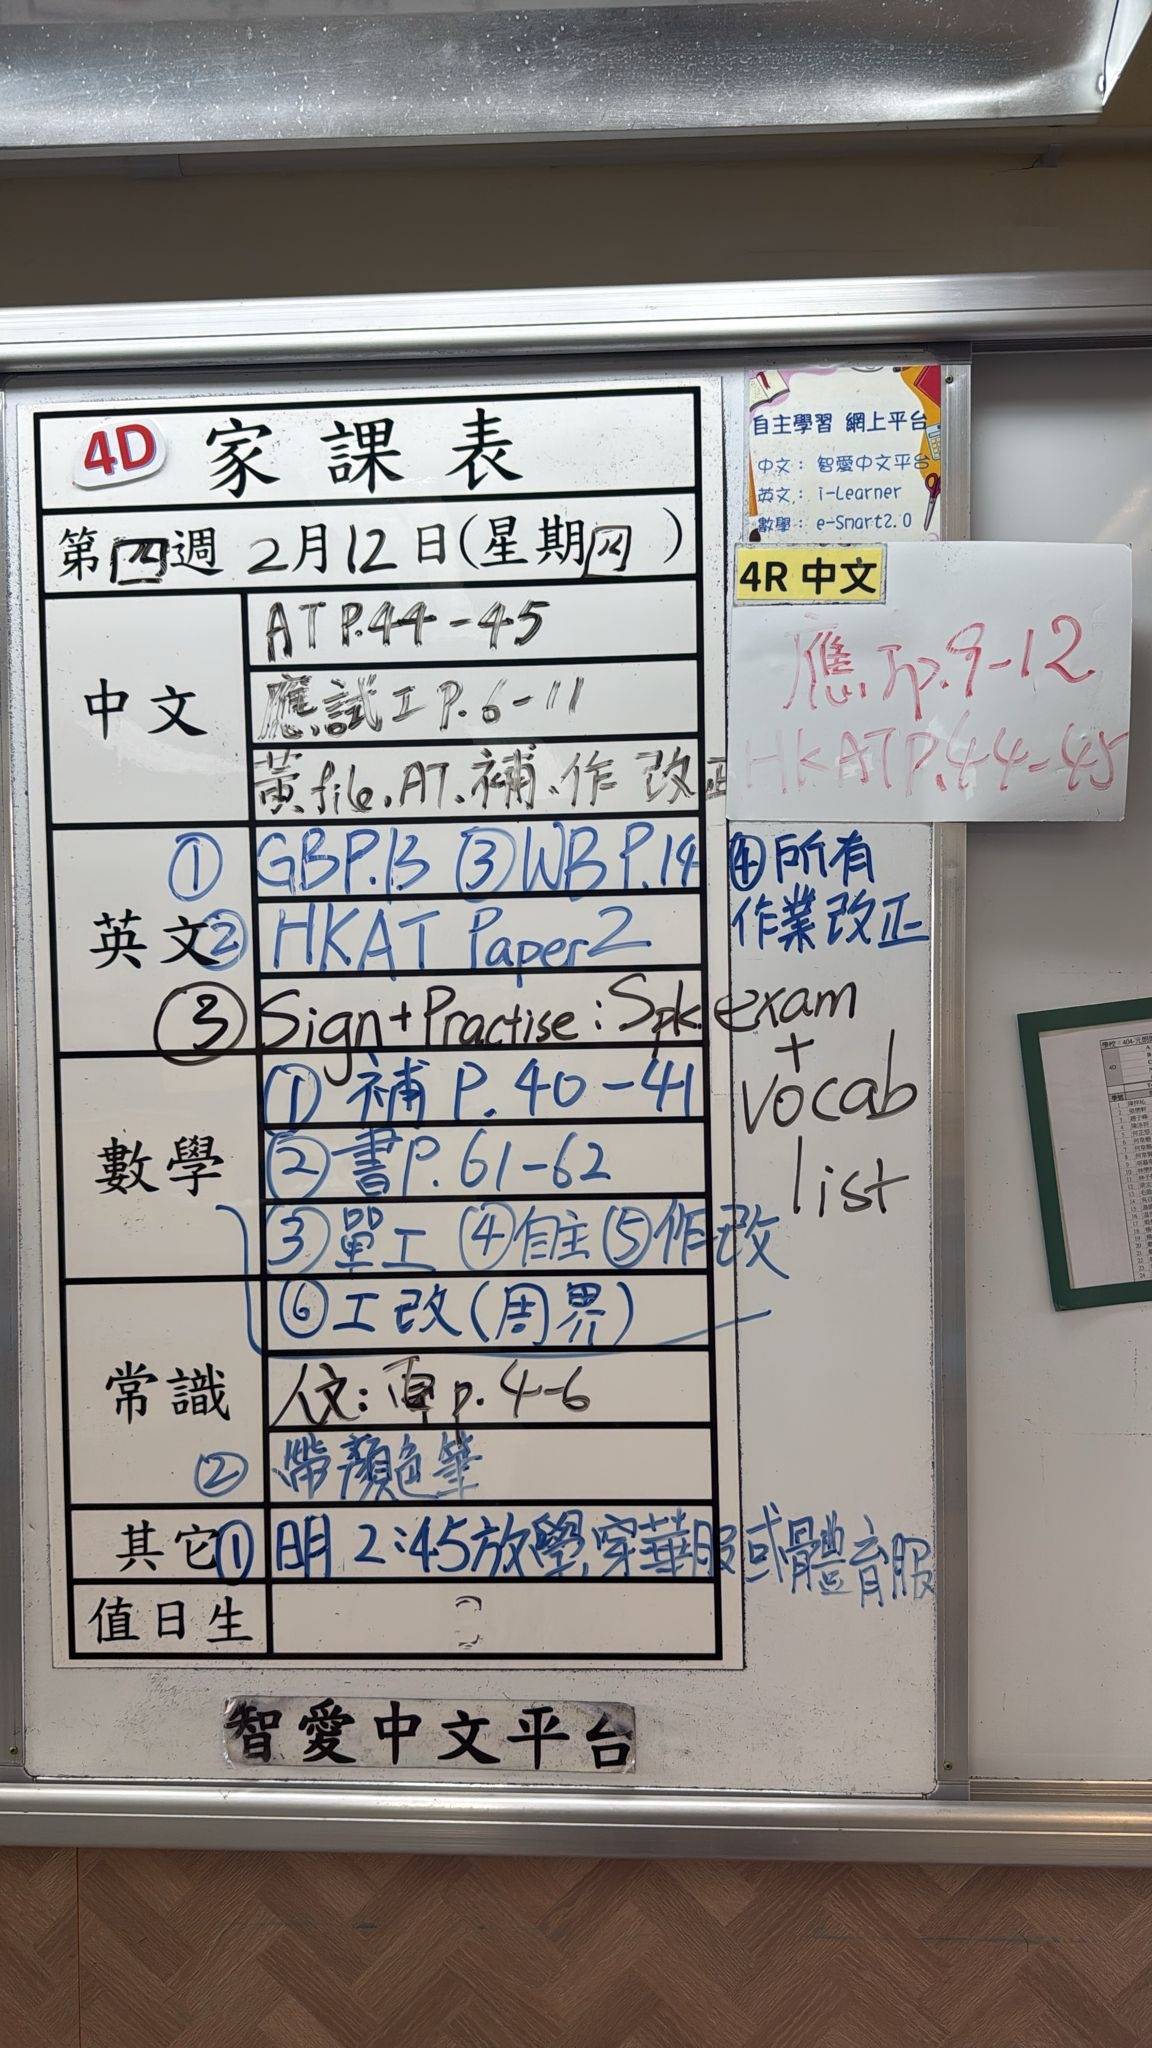 4D 家課表
第四週 2月12日(星期四)
中文
AT P.44-45
應試工 P.6-11
黃file、AT、補、作 改正
英文
① GB P.13 ③ WB P.14 ④所有
作業改正
② HKAT Paper 2
③ Sign + Practise : Spk. exam
+
vocab
list
數學
① 補 P.40-41
② 書 P.61-62
③ 單工 ④自主 ⑤作改
⑥工改(周界)
常識
人文: p.4-6
② 帶顏色筆
其它 ① 明 2:45放學,穿華服或體育服
值日生
智愛中文平台
自主學習 網上平台
中文: 智愛中文平台
英文: i-Learner
數學: e-Smart2.0
4R 中文
應工p.9-12
HKAT P.44-45
4D